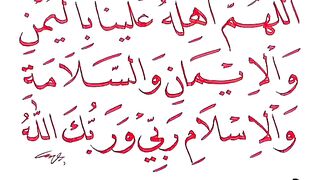 اللهم أهله علينا باليمن
والإيمان والسلامة
والإسلام ربي وربك الله